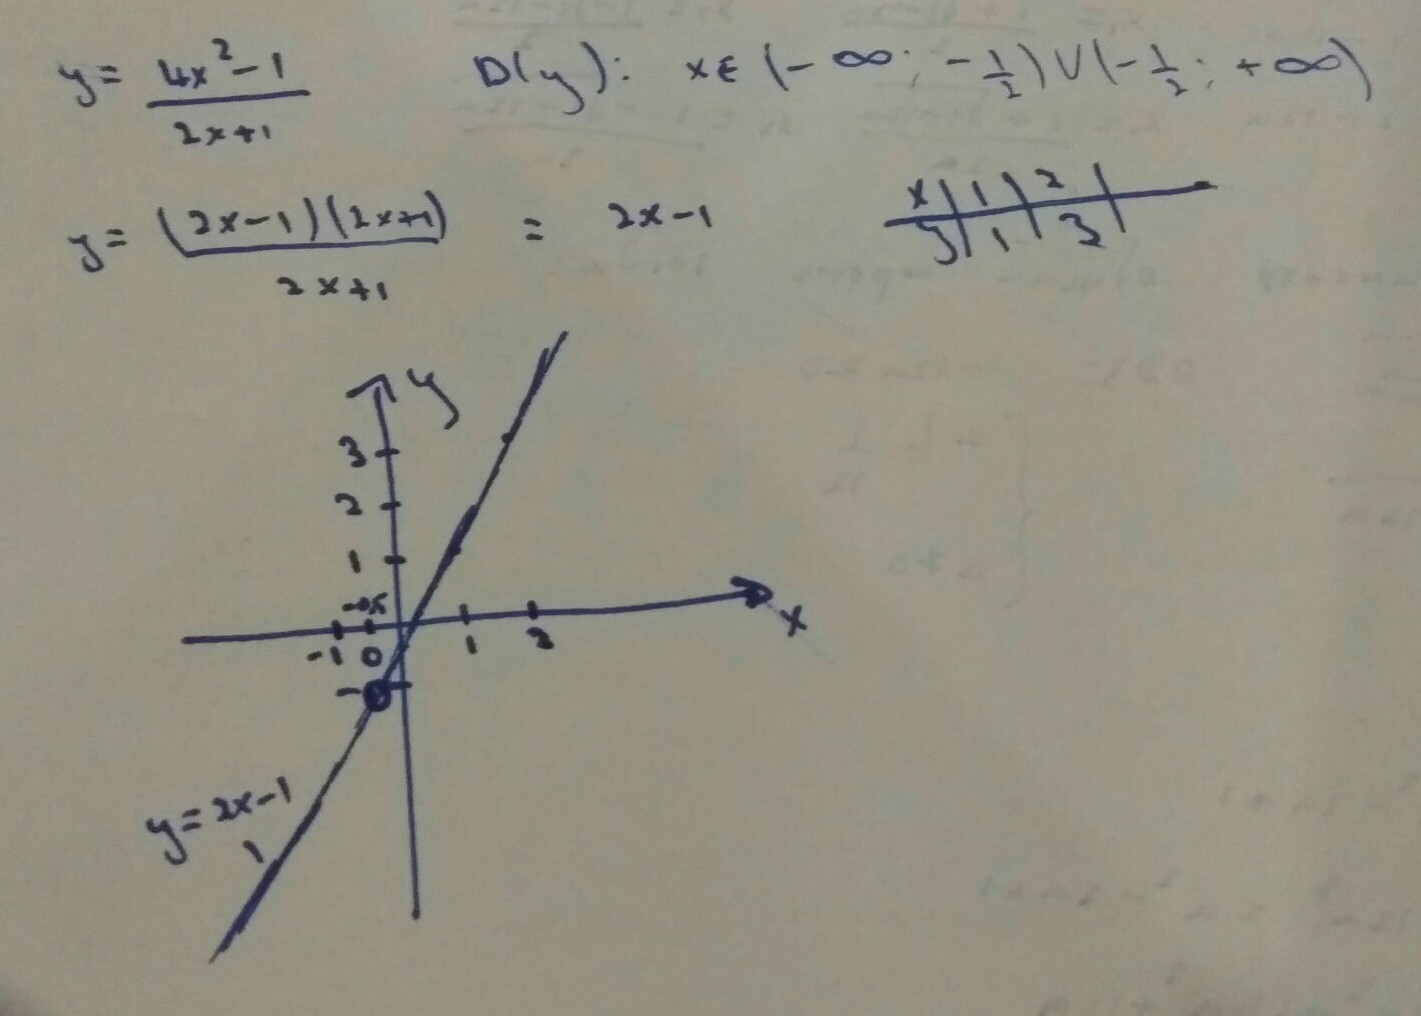 y = (4x² - 1) / (2x + 1) D(y): x ∈ (-∞; -1/2) ∪ (-1/2; +∞)
y = (2x-1)(2x+1) / (2x+1) = 2x-1
x | 1 | 2 |
y | 1 | 3 |
y
3
2
1
-0,5
-1 0 1 2 x
y = 2x-1